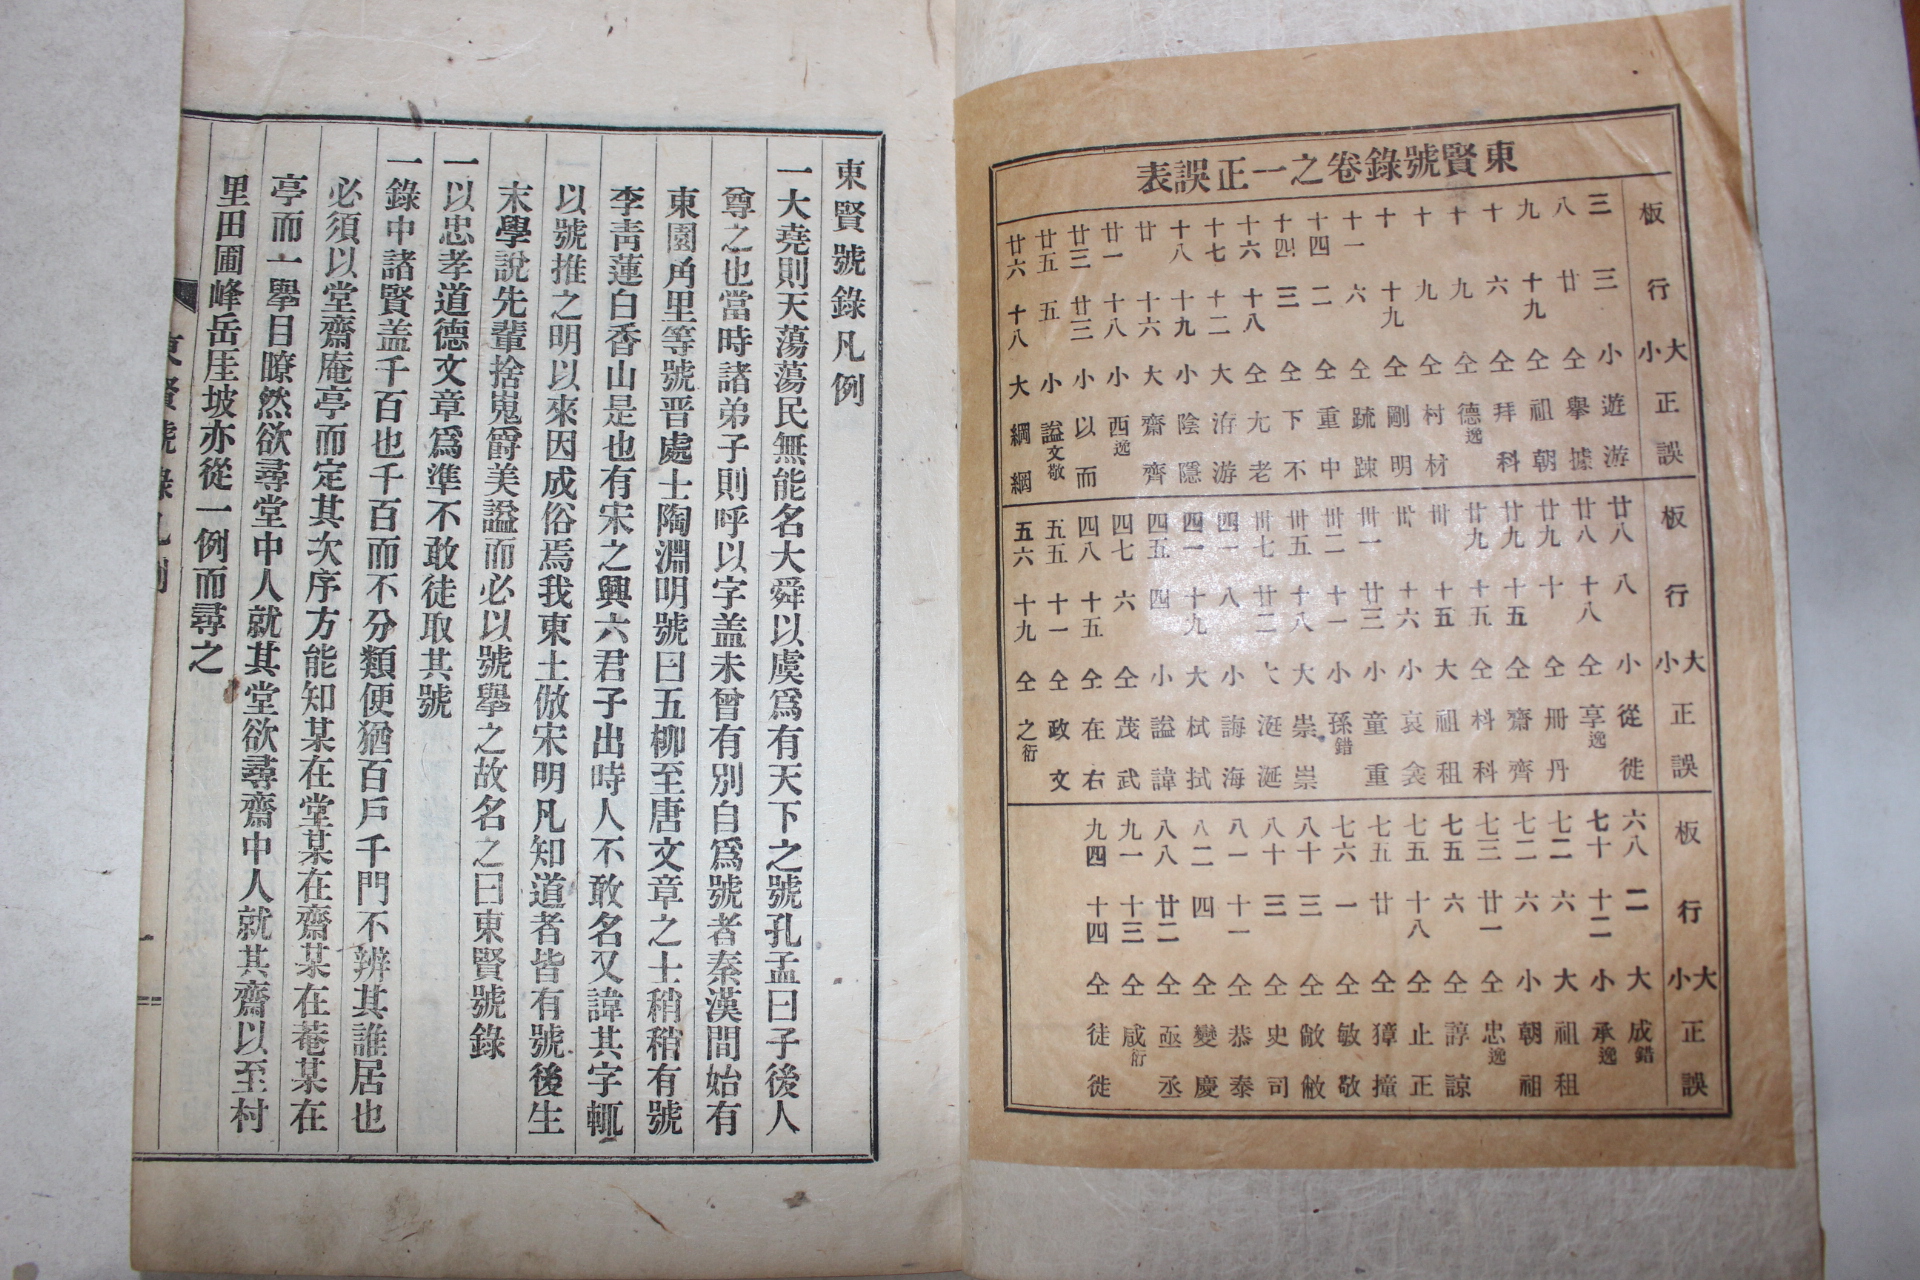 東賢號錄卷之一正誤表
板 行 大小 正 誤
三 三 小 遊 游
八 廿 仝 擧 據
九 十九 仝 祖 朝
十 六 仝 拜 科
十 九 仝 德逸
十 九 仝 村 材
十 十九 仝 剛 明
十一 六 仝 䟽 踈
十四 二 仝 重 中
十四 三 仝 下 不
十六 十八 仝 老
十七 十二 大 洊 游
十八 十九 小 陰 隱
廿 十六 大 齋 齊
廿一 十八 小 西逸
廿三 廿三 小 以 而
廿五 五 小 諡文敬
廿六 十八 大 綱 網
板 行 大小 正 誤
廿八 八 小 從 徙
廿八 十八 仝 享逸
廿九 十 仝 冊 丹
廿九 十五 仝 齋 齊
廿九 十五 仝 科
卅 十五 大 祖 租
卅 十六 小 哀
卅一 廿三 小 童 重
卅二 十一 小 孫錯
卅五 十八 大 崇 祟
卅七 廿二 大 涎
四一 八 小 誨 海
四一 十九 大 栻 拭
四五 四 小 諡 諱
四七 六 仝 茂 武
四八 十五 仝 在 右
五五 十一 仝 政 文
五六 十九 仝 之衍
板 行 大小 正 誤
六八 二 大 成錯
七十 十二 小 承逸
七二 六 大 祖 租
七二 六 小 朝 祖
七三 廿一 仝 忠逸
七五 六 仝 諄 諒
七五 十八 仝 止 正
七五 廿 仝 獐 撞
七六 一 仝 敏 敬
八十 三 仝 敞 敝
八十 三 仝 史 司
八一 十一 仝 恭 泰
八二 四 仝 變 慶
八八 廿二 仝 亟 丞
九一 十三 仝 咸衍
九四 十四 仝 徒 徙
東賢號錄凡例
一大堯則天蕩蕩民無能名大舜以虞爲有天下之號孔孟曰子後人
尊之也當時諸弟子則呼以字盖未曾有別自爲號者秦漢間始有
東園角里等號晋處士陶淵明號曰五柳至唐文章之士稍稍有號
李靑蓮白香山是也有宋之興六君子出時人不敢名又諱其字輒
以號推之明以來因成俗焉我東土倣宋明凡知道者皆有號後生
末學說先輩捨嵬爵美諡而必以號擧之故名之曰東賢號錄
一以忠孝道德文章爲準不敢徒取其號
一錄中諸賢盖千百也千百而不分類便猶百戶千門不辨其誰居也
必須以堂齋庵亭而定其次序方能知某在堂某在齋某在菴某在
亭而一擧目瞭然欲尋堂中人就其堂欲尋齋中人就其齋以至村
里田圃峰岳厓坡亦從一例而尋之
東賢號錄凡例
一